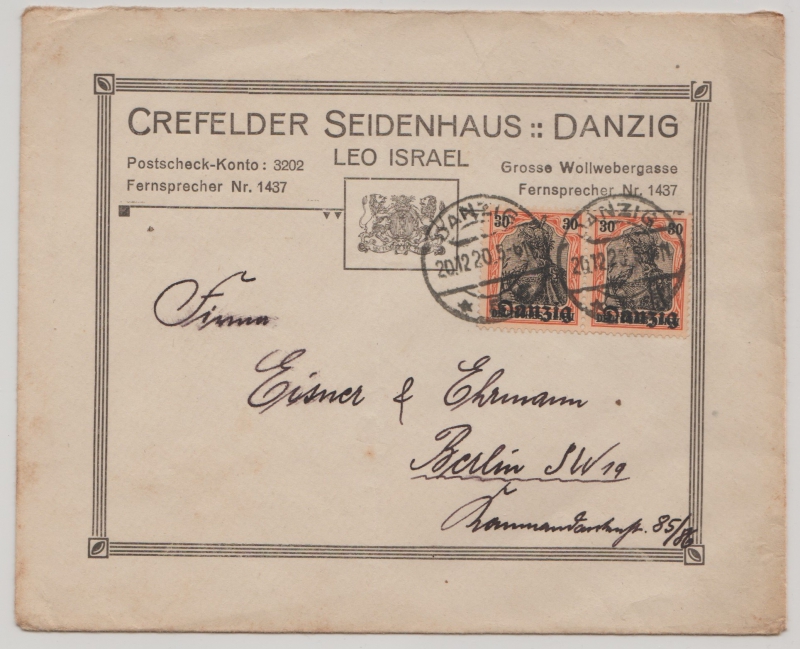 CREFELDER SEIDENHAUS :: DANZIG
LEO ISRAEL
Postscheck-Konto: 3202
Fernsprecher Nr. 1437
Grosse Wollwebergasse
Fernsprecher Nr. 1437
DANZIG
20.12.20.5-6N
30 30
Danzig
DANZIG
20.12.20
30 30
Danzig
Firma
Eisner & Ehrmann
Berlin SW 19
Kommandantenstr. 85/86